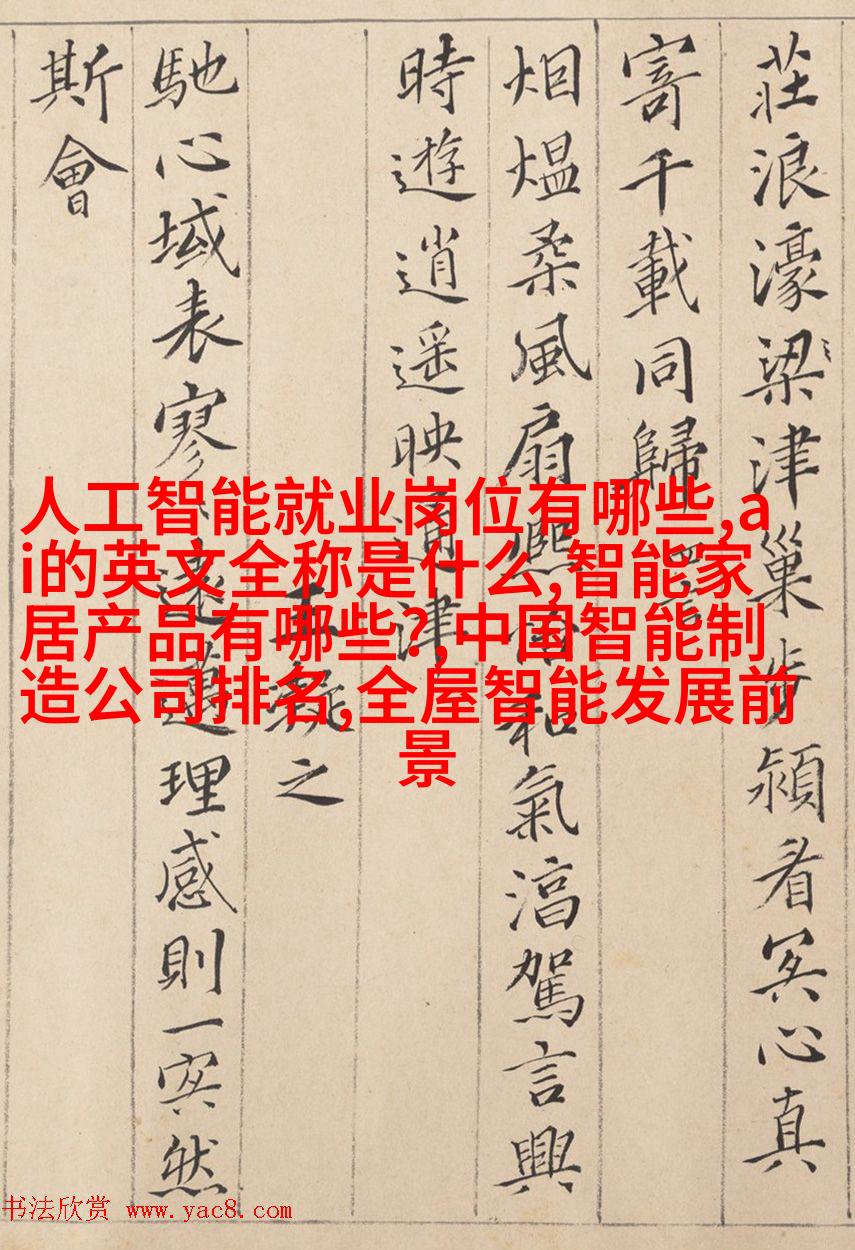 莊浪濠梁津巢步潁看冥心真
寄千載同歸
烟熅柔風扇熈怡和氣湻駕言興
時遊逍遥映通津
王凝之
馳心域表寥〻遠邁理感則一冥然
斯會
人工智能就业岗位有哪些,a
i的英文全称是什么,智能家
居产品有哪些?,中国智能制
造公司排名,全屋智能发展前
景
书法欣赏 www.yac8.com